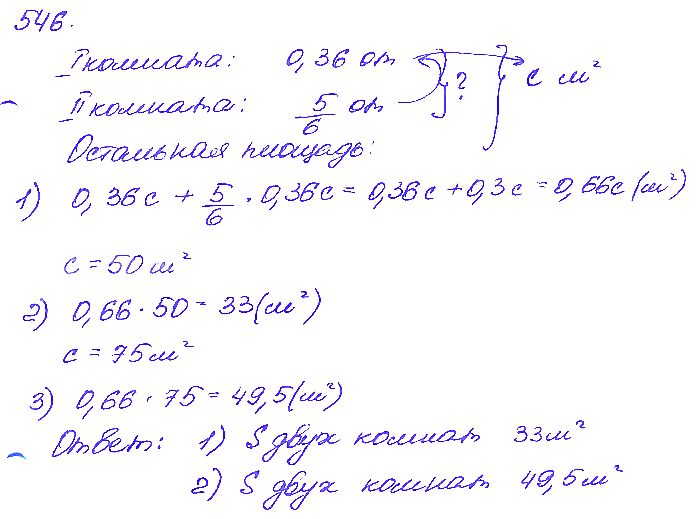 546.
I комната: 0,36 от
II комната: 5/6 от } ? } c м²
Остальная площадь:
1) 0,36c + 5/6 · 0,36c = 0,36c + 0,3c = 0,66c (м²)
c = 50 м²
2) 0,66 · 50 = 33 (м²)
c = 75 м²
3) 0,66 · 75 = 49,5 (м²)
Ответ: 1) S двух комнат 33 м²
2) S двух комнат 49,5 м²